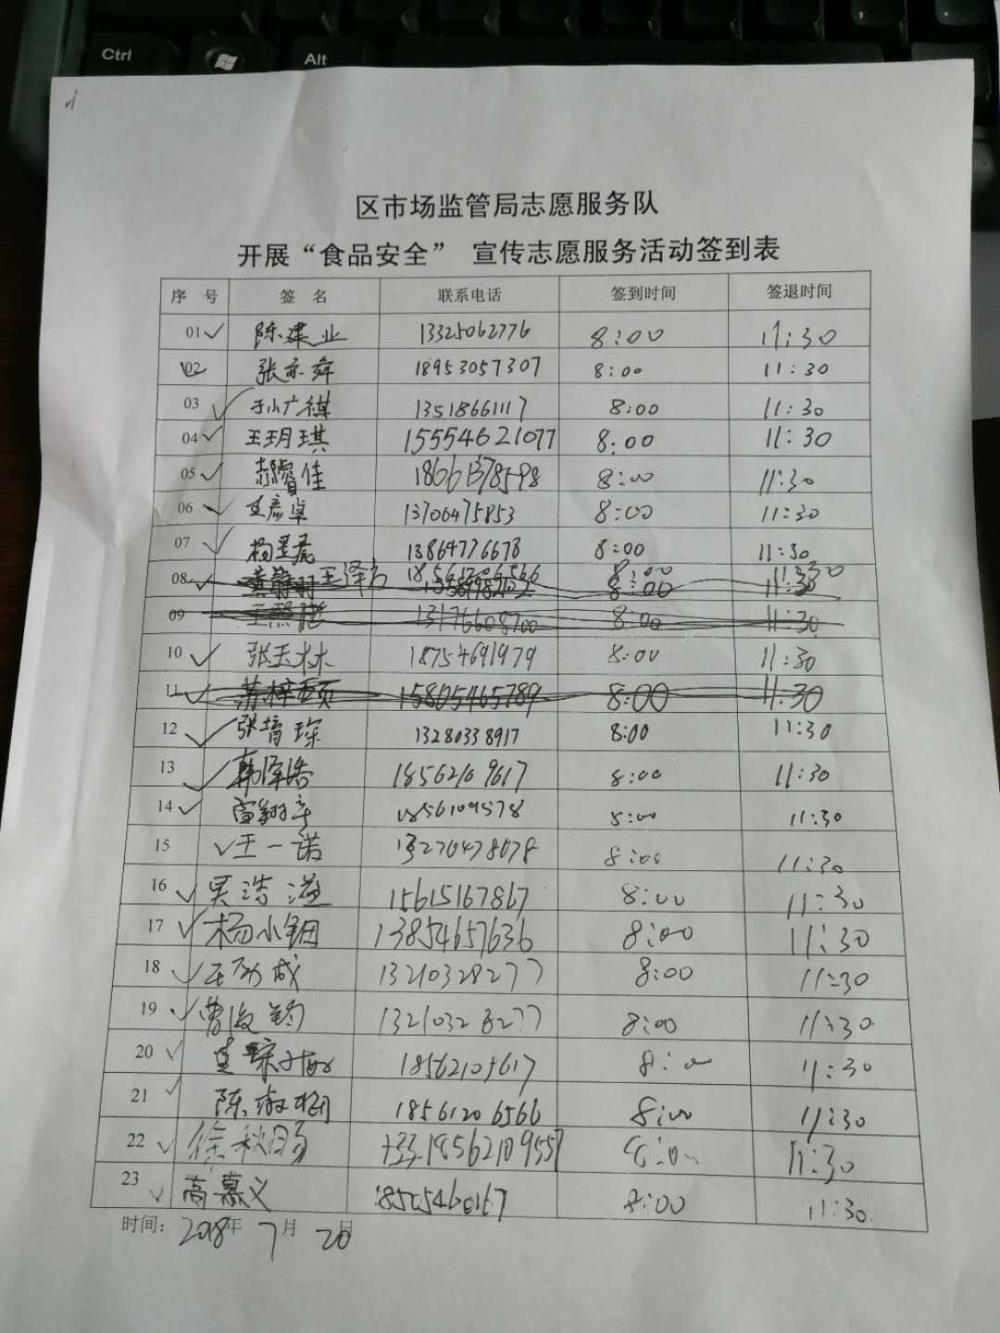 Ctrl
Alt
区市场监管局志愿服务队
开展“食品安全” 宣传志愿服务活动签到表
序 号 签 名 联系电话 签到时间 签退时间
01 陈建业 13325062776 8:00 11:30
02 张亦舜 18953057307 8:00 11:30
03 13518661117 8:00 11:30
04 王玥琪 15554621077 8:00 11:30
05 郝睿佳 18661378598 8:00 11:30
06 13706475853 8:00 11:30
07 13864776678 8:00 11:30
08 18561206566 8:00 11:30
09 王熙 13176608700 8:00 11:30
10 张玉林 18754691979 8:00 11:30
11 15805465789 8:00 11:30
12 张 琛 13280338917 8:00 11:30
13 韩泽浩 18562109617 8:00 11:30
14 8:00 11:30
15 王一诺 13270478078 8:00 11:30
16 吴浩溢 15615167867 8:00 11:30
17 杨小钿 13854657636 8:00 11:30
18 成 13210328277 8:00 11:30
19 曹俊钧 13210328277 8:00 11:30
20 18562109617 8:00 11:30
21 陈淑桐 18561206566 8:00 11:30
22 徐秋 18562109557 8:00 11:30
23 高慕义 18505460167 8:00 11:30
时间：2018年 7月 20日